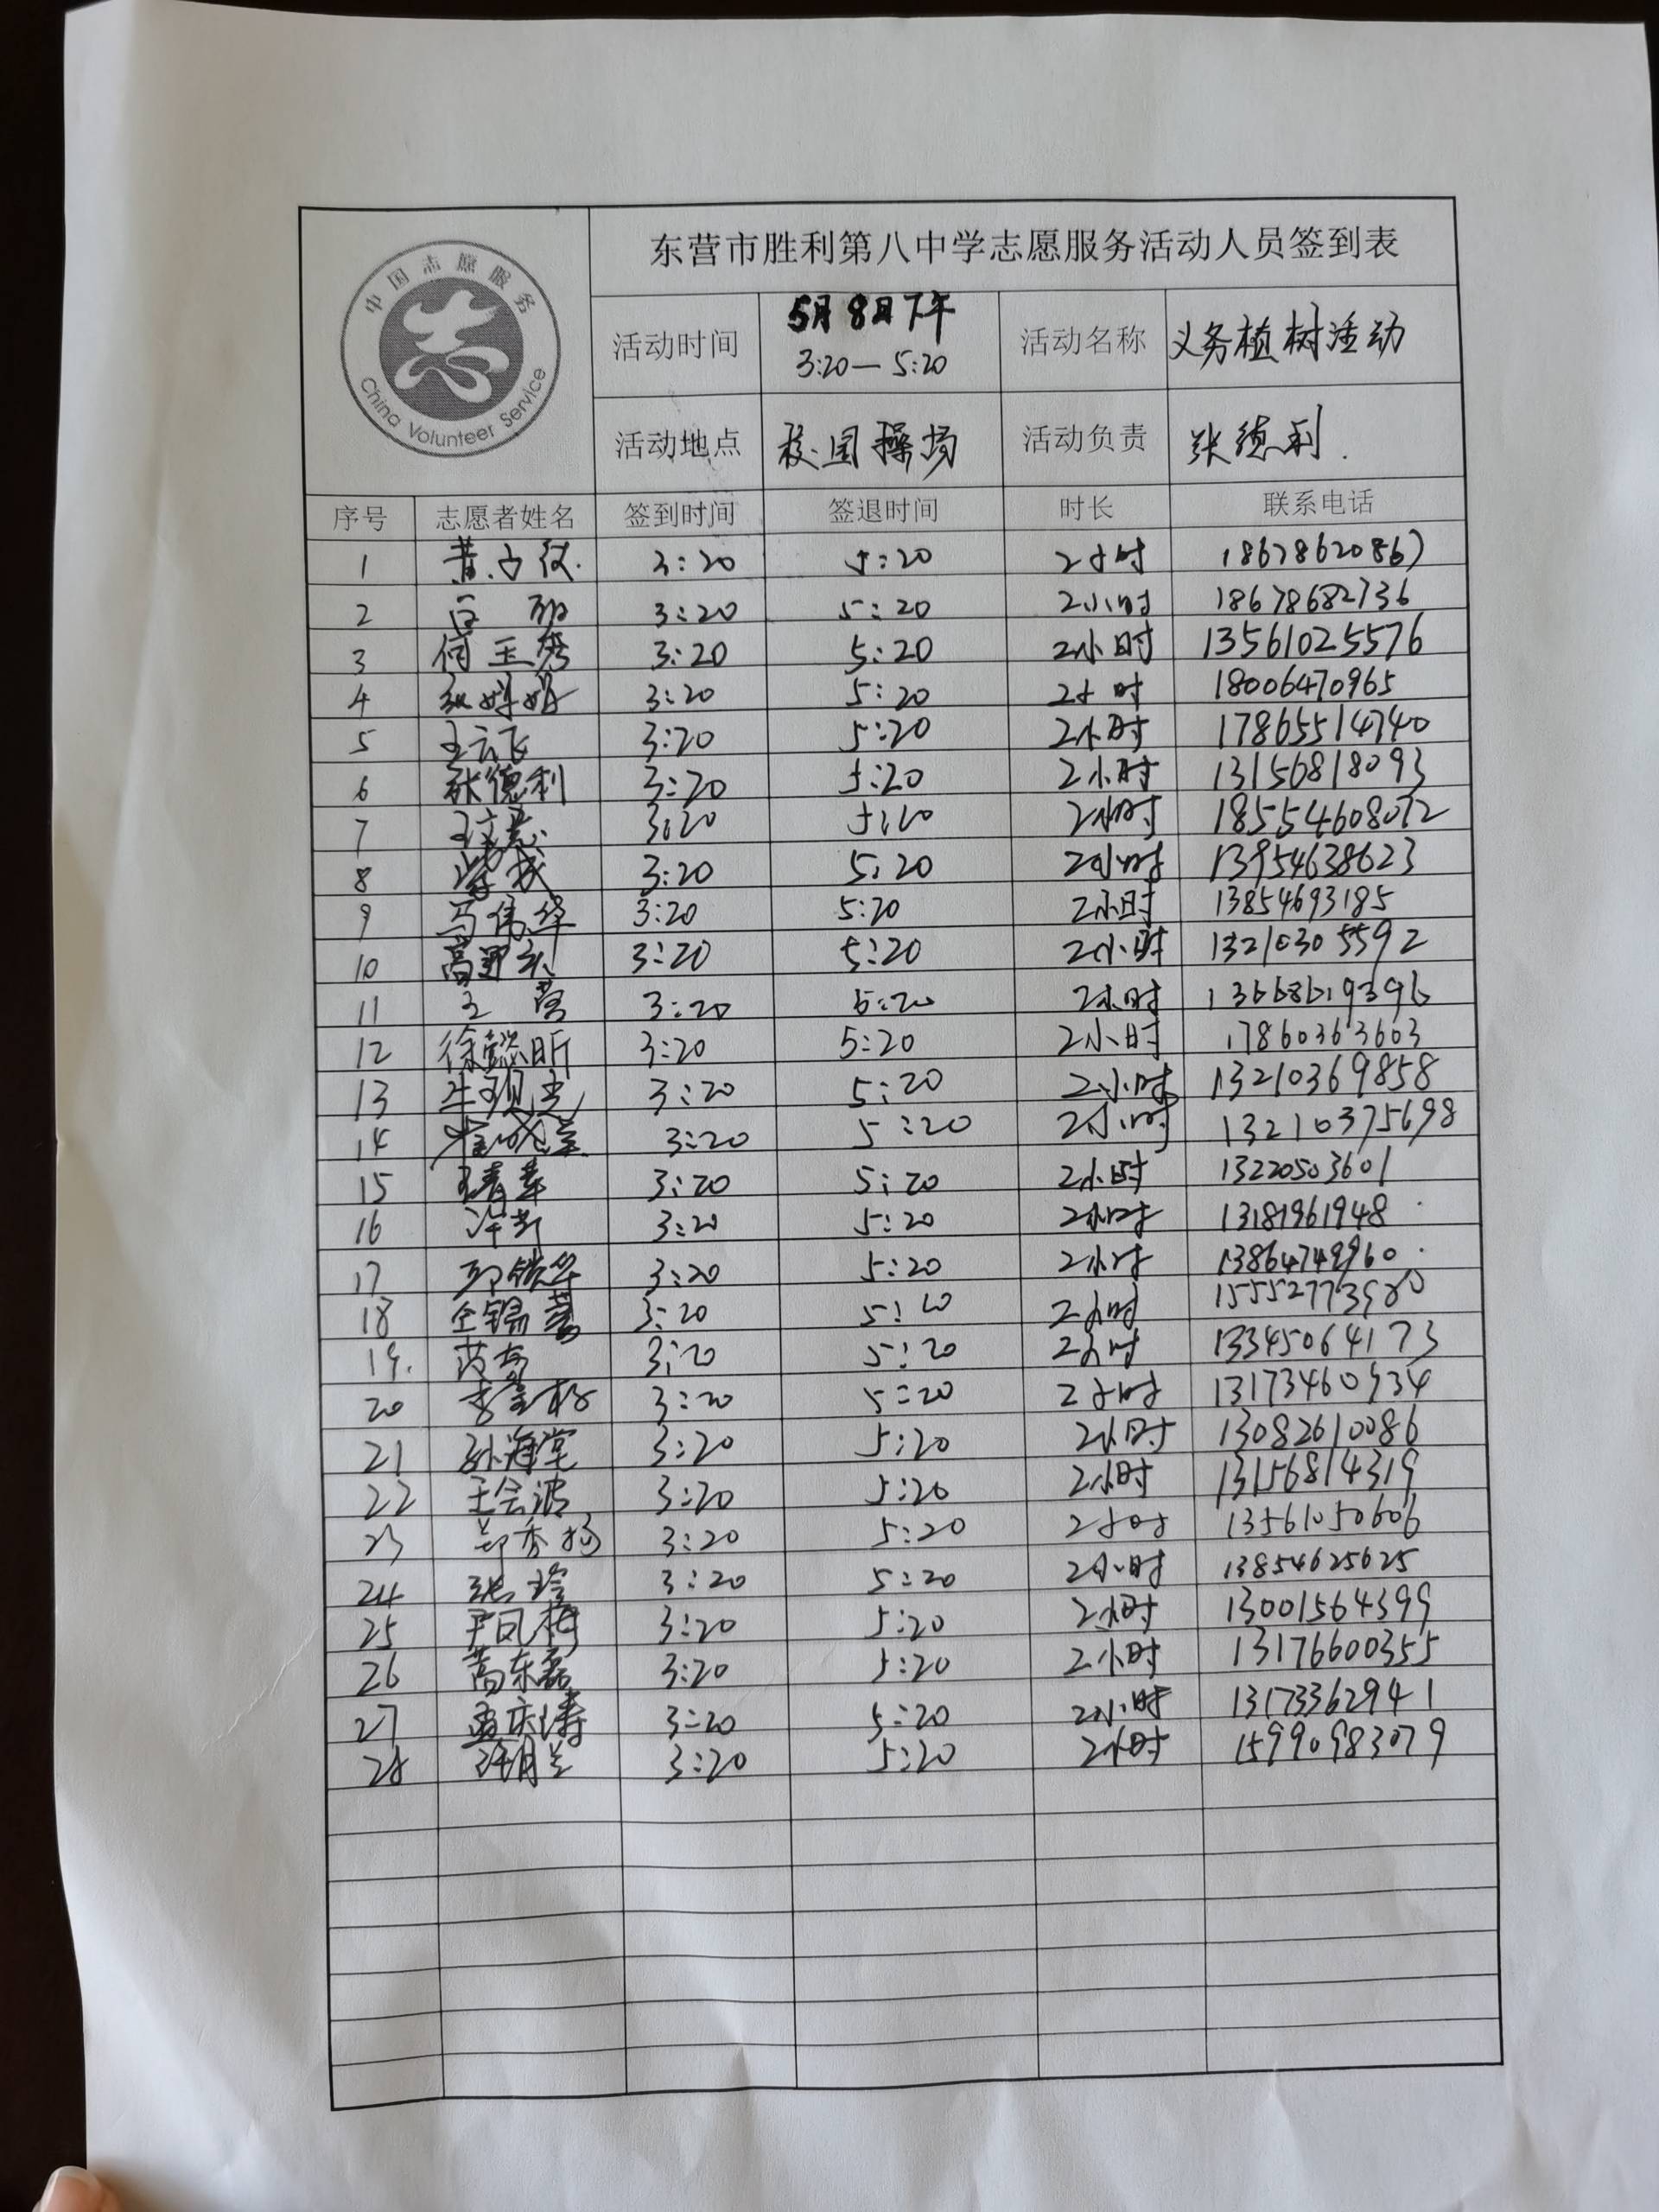 中国志愿服务
China Volunteer Service
东营市胜利第八中学志愿服务活动人员签到表
活动时间 5月8日下午 3:20—5:20 活动名称 义务植树活动
活动地点 校园操场 活动负责 张德利.
序号 志愿者姓名 签到时间 签退时间 时长 联系电话
1 3:20 5:20 2小时 18678620867
2 3:20 5:20 2小时 18678682736
3 何玉秀 3:20 5:20 2小时 13561025576
4 3:20 5:20 2小时 18006470965
5 王云飞 3:20 5:20 2小时 17865514740
6 张德利 3:20 5:20 2小时 13156818093
7 3:20 5:20 2小时 185554608072
8 3:20 5:20 2小时 13954638623
9 马伟华 3:20 5:20 2小时 13854693185
10 3:20 5:20 2小时 13210305592
11 3:20 5:20 2小时 13668619396
12 徐懿昕 3:20 5:20 2小时 17860363603
13 牛观光 3:20 5:20 2小时 13210369858
14 3:20 5:20 2小时 13210375698
15 3:20 5:20 2小时 13220503601
16 3:20 5:20 2小时 13181961948
17 3:20 5:20 2小时 13864749960
18 3:20 5:20 2小时 15552773980
19. 3:20 5:20 2小时 13345064173
20 3:20 5:20 2小时 13173460934
21 孙海堂 3:20 5:20 2小时 13082610086
22 王会波 3:20 5:20 2小时 13156814319
23 3:20 5:20 2小时 13561050606
24 3:20 5:20 2小时 13854625625
25 尹凤梅 3:20 5:20 2小时 13001564399
26 高东磊 3:20 5:20 2小时 13176600355
27 孟庆涛 3:20 5:20 2小时 13173362941
28 3:20 5:20 2小时 15990983079